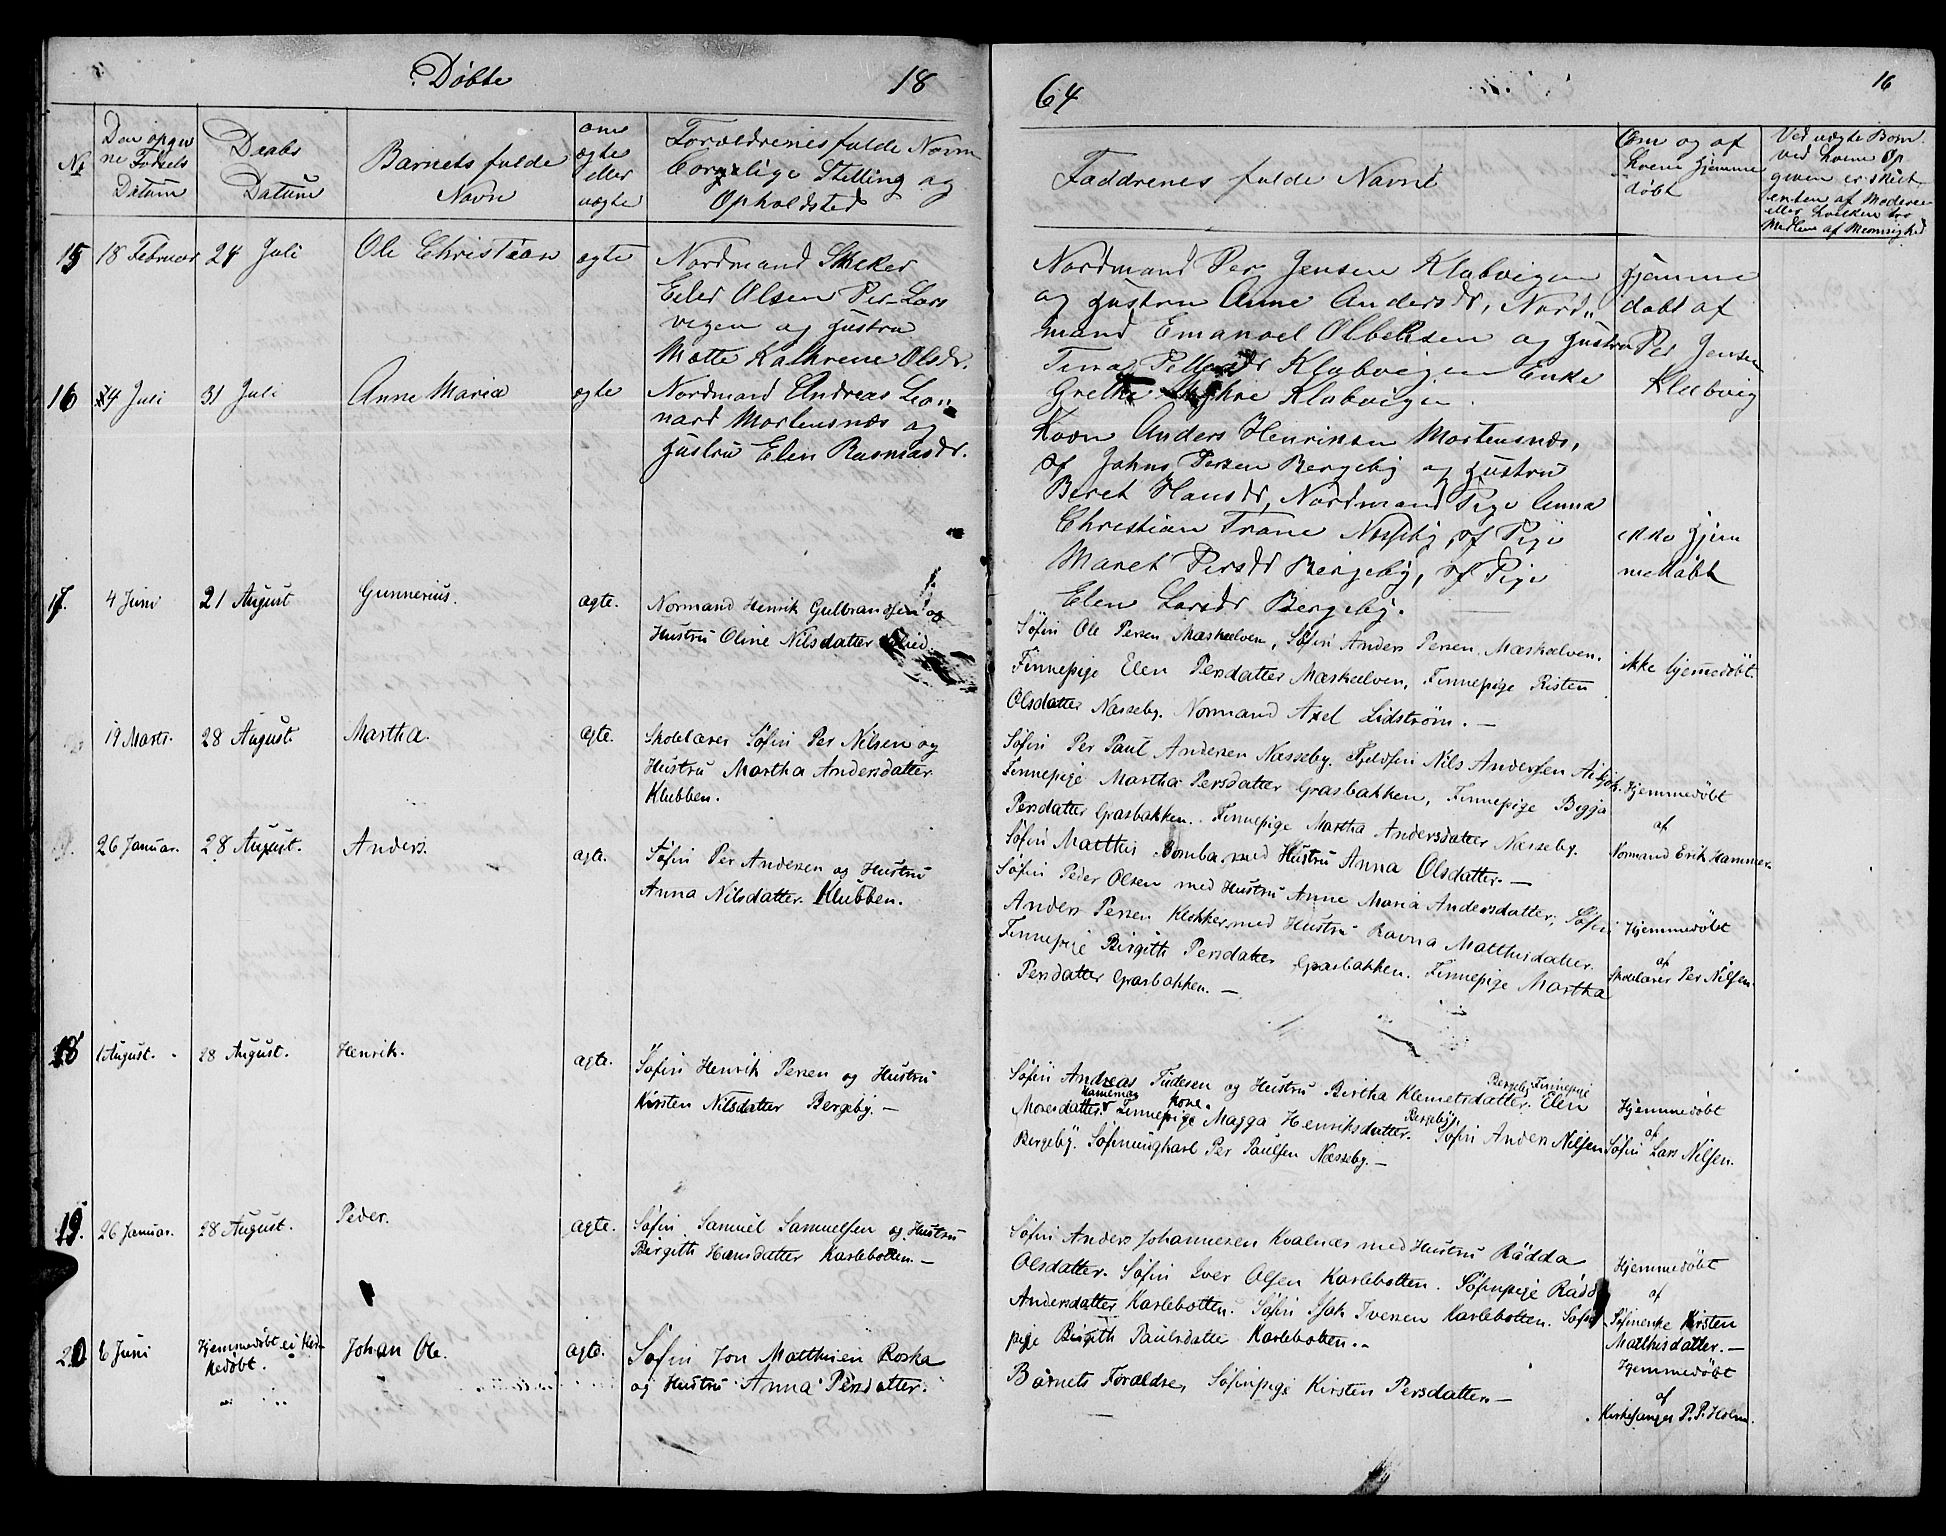 Døbte 18
64
16
No
Den opgiv
ne Fødsels
Datum
Daabs
Datum
Barnets fulde
Navn
om
ægte
eller
uægte
Forældrenes fulde Navn
Borgelige Stilling og
Opholdsted
Faddrenes fulde Navne
Om og af
hvem hjemme
døbt
Ved uægte Børn
ved hvem Op
given er skeet
enten af Moderen
eller hvilken tro
Medlem af Menighed
15 18 Februar 24 Juli Ole Christian ægte
Nordmand
Eiler Olsen Per Lars
vegen og Hustru
Mette Kathrene Olsdr.
Nordmand Per Jensen Klubvigen
og Hustru Anne Andersdr, Nord,,
mand Emanoel Olbeksen og Hustru
Tina Klubvigen Enke
Grethe Klubvigen.
Hjemme
døbt af
Per Jensen
Klubvig
16 4 Juli 31 Juli Anne Maria ægte
Nordmand Andreas Leon,,
nard Mortensnæs og
Hustru Elen Rasmusdr.
Kvæn Anders Henriksen Mortensnæs,
sf Johns Persen Bergeby og Hustru
Beret Hansdr, Nordmand Pige Anna
Christian Trane Næsseby, sf Pige
Maret Persdr Bergeby, sf Pige
Elen Larsdr Bergeby.
ikke hjem
medøbt
17. 4 Juni 21 August Gunnerius. ægte.
Normand Henrik Gulbrandsen og
Hustru Oline Nilsdatter
Søfin Ole Persen Mæskelven, Søfin Anders Persen Mæskelven.
Finnepige Elen Persdatter Mæskelven, Finnepige Risten
Olsdatter Næsseby. Normand Axel Lidstrøm. —
ikke hjemmedøbt.
19 Marts. 28 August. Martha. ægte.
Skolelærer Søfin Per Nilsen og
Hustru Martha Andersdatter
Klubben.
Søfin Per Paul Andersen Næsseby. Fjeldfin Nils Andersen
Finnepige Martha Persdatter Græsbakken, Finnepige Bigga
Persdatter Græsbakken. Finnepige Martha Andersdatter Næsseby.
Søfin Matthis Bomba med Hustru Anna Olsdatter. —
Hjemmedøbt
af
Normand Erik Hammer.
26 Januar. 28 August. Anders. ægte.
Søfin Per Andersen og Hustru
Anna Nilsdatter Klubben.
Søfin Peder Olsen med Hustru Anne Maria Andersdatter, Søfin
Anders Persen Klokker med Hustru Ravna Matthisdatter.
Finnepige Birgith Persdatter Græsbakken. Finnepige Martha
Persdatter Græsbakken. —
Hjemmedøbt
af
Skolelærer Per Nilsen.
18 1 August. 28 August. Henrik. ægte.
Søfin Henrik Persen og Hustru
Kirsten Nilsdatter Bergeby. —
Søfin Andreas Tudesen og Hustru Birtha Klemetsdatter. Bergeby Finnepige Elen
Mosesdatter. Finnepige kone. Magga Henriksdatter. Bergeby. Søfin Anders Nilsen
Bergeby. Søfinungkarl Per Paulsen Næsseby. —
Hjemmedøbt
af
Søfin Lars Nilsen.
19. 26 Januar. 28 August. Peder. ægte.
Søfin Samuel Samuelsen og Hustru
Birgith Hansdatter Karlebotten. —
Søfin Anders Johannesen Kvalnæs med Hustru Rädda
Olsdatter. Søfin Iver Olsen Karlebotten. Søfinpige Rädda
Andersdatter Karlebotten. Søfin Isak Iversen Karlebotten. Søfin
pige Birgith Paulsdatter Karlebotten..
Hjemmedøbt
af
Søfinenke Kirsten
Mathisdatter. —
20 6 Juni Hjemmedøbt ei kir
kedøbt. Johan Ole. ægte.
Søfin Jon Matthisen Roska
og Hustru Anna Persdatter.
Barnets Forældre, Søfinpige Kirsten Persdatter. —
Hjemmedøbt
af
Kirkesanger P. P. Holm.